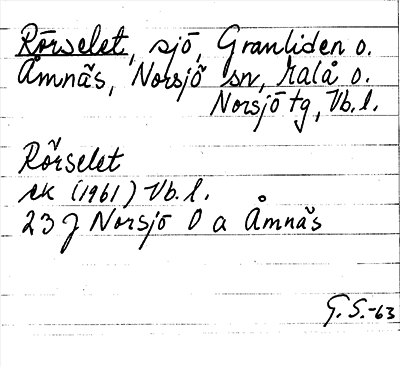 Rörselet, sjö, Granliden o.
Åmnäs, Norsjö sn, Malå o.
Norsjö tg, Vb. l.
Rörselet
ek (1961) Vb. l.
23 J Norsjö O a Åmnäs
G. S. -63